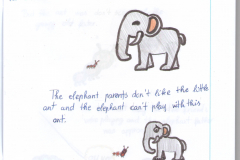 The elephant parents don't like the little
ant and the elephant can't play with this
ant.